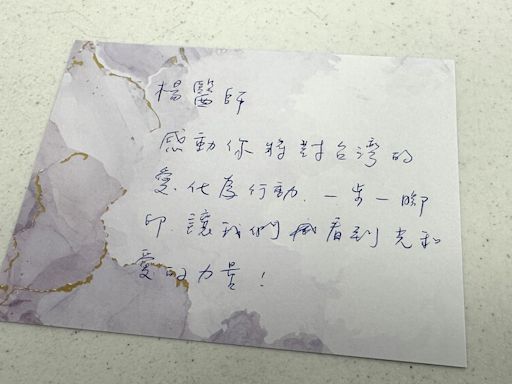 楊醫師
感動你將對台灣的
愛化為行動.一步一腳
印.讓我們看到光和
愛的力量!